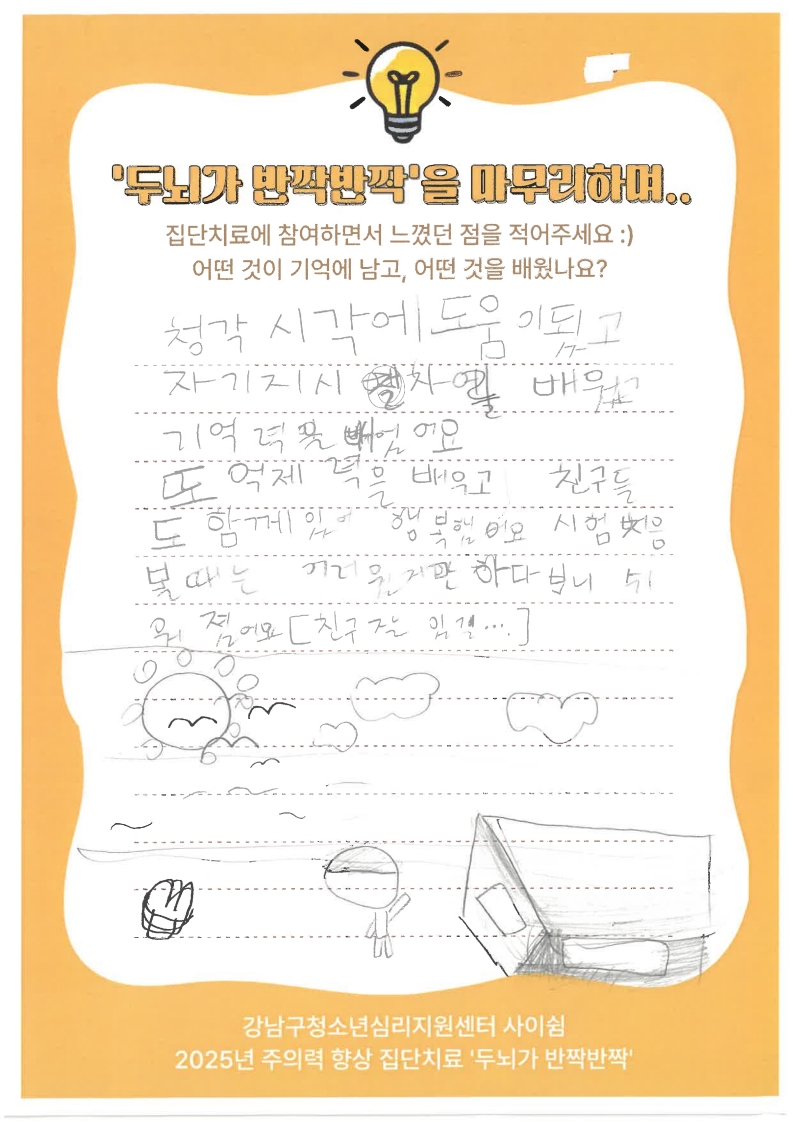 '두뇌가 반짝반짝'을 마무리하며..
집단치료에 참여하면서 느꼈던 점을 적어주세요 :)
어떤 것이 기억에 남고, 어떤 것을 배웠나요?
청각 시각에 도움이됬고
자기지시 배웠고
기억력 어요
또 억제력을 배우고 친구들
도 함께 있어 행복했어요 시험 처음
볼때는 어려웠지만 하다보니 쉬
워 졌어요 [친구 있길...]
강남구청소년심리지원센터 사이쉼
2025년 주의력 향상 집단치료 '두뇌가 반짝반짝'